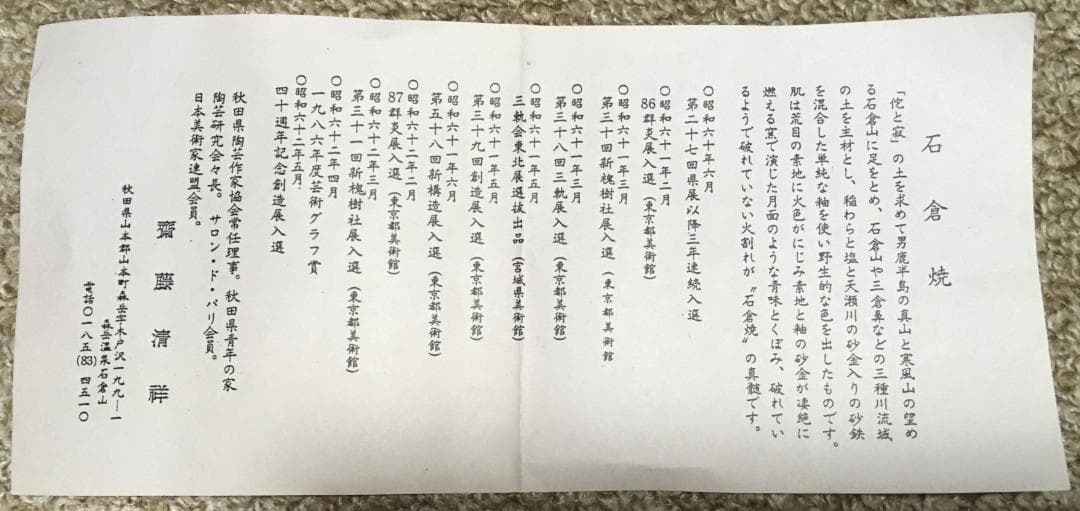 石倉焼
「侘と寂」の土を求めて男鹿半島の真山と寒風山の望め
る石倉山に足をとめ、石倉山や三倉鼻などの三種川流域
の土を主材とし、稲わらと塩と天瀬川の砂金入りの砂鉄
を混合した単純な釉を使い野生的な色を出したものです。
肌は荒目の素地に火色がにじみ素地と釉の砂金が凄絶に
燃える窯で演じた月面のような青味とくぼみ、破れてい
るようで破れていない火割れが〝石倉焼〟の真髄です。
〇昭和六十年六月
第二十七回県展以降三年連続入選
〇昭和六十一年二月
86群炎展入選(東京都美術館)
〇昭和六十一年三月
第三十回新槐樹社展入選(東京都美術館)
〇昭和六十一年三月
第三十八回三軌展入選(東京都美術館)
〇昭和六十一年五月
三軌会東北展選抜出品(宮城県美術館)
〇昭和六十一年五月
第三十九回創造展入選(東京都美術館)
〇昭和六十一年六月
第五十八回新構造展入選(東京都美術館)
〇昭和六十二年二月
87群炎展入選(東京都美術館)
〇昭和六十二年三月
第三十一回新槐樹社展入選(東京都美術館)
〇昭和六十二年四月
一九八六年度芸術グラフ賞
〇昭和六十二年五月
四十週年記念創造展入選
秋田県陶芸作家協会常任理事。秋田県青年の家
陶芸研究会々長。サロン・ド・パリ会員。
日本美術家連盟会員。
齋藤清祥
秋田県山本郡山本町森岳字木戸沢一九九―一
森岳温泉石倉山
電話〇一八五(83)四五一〇